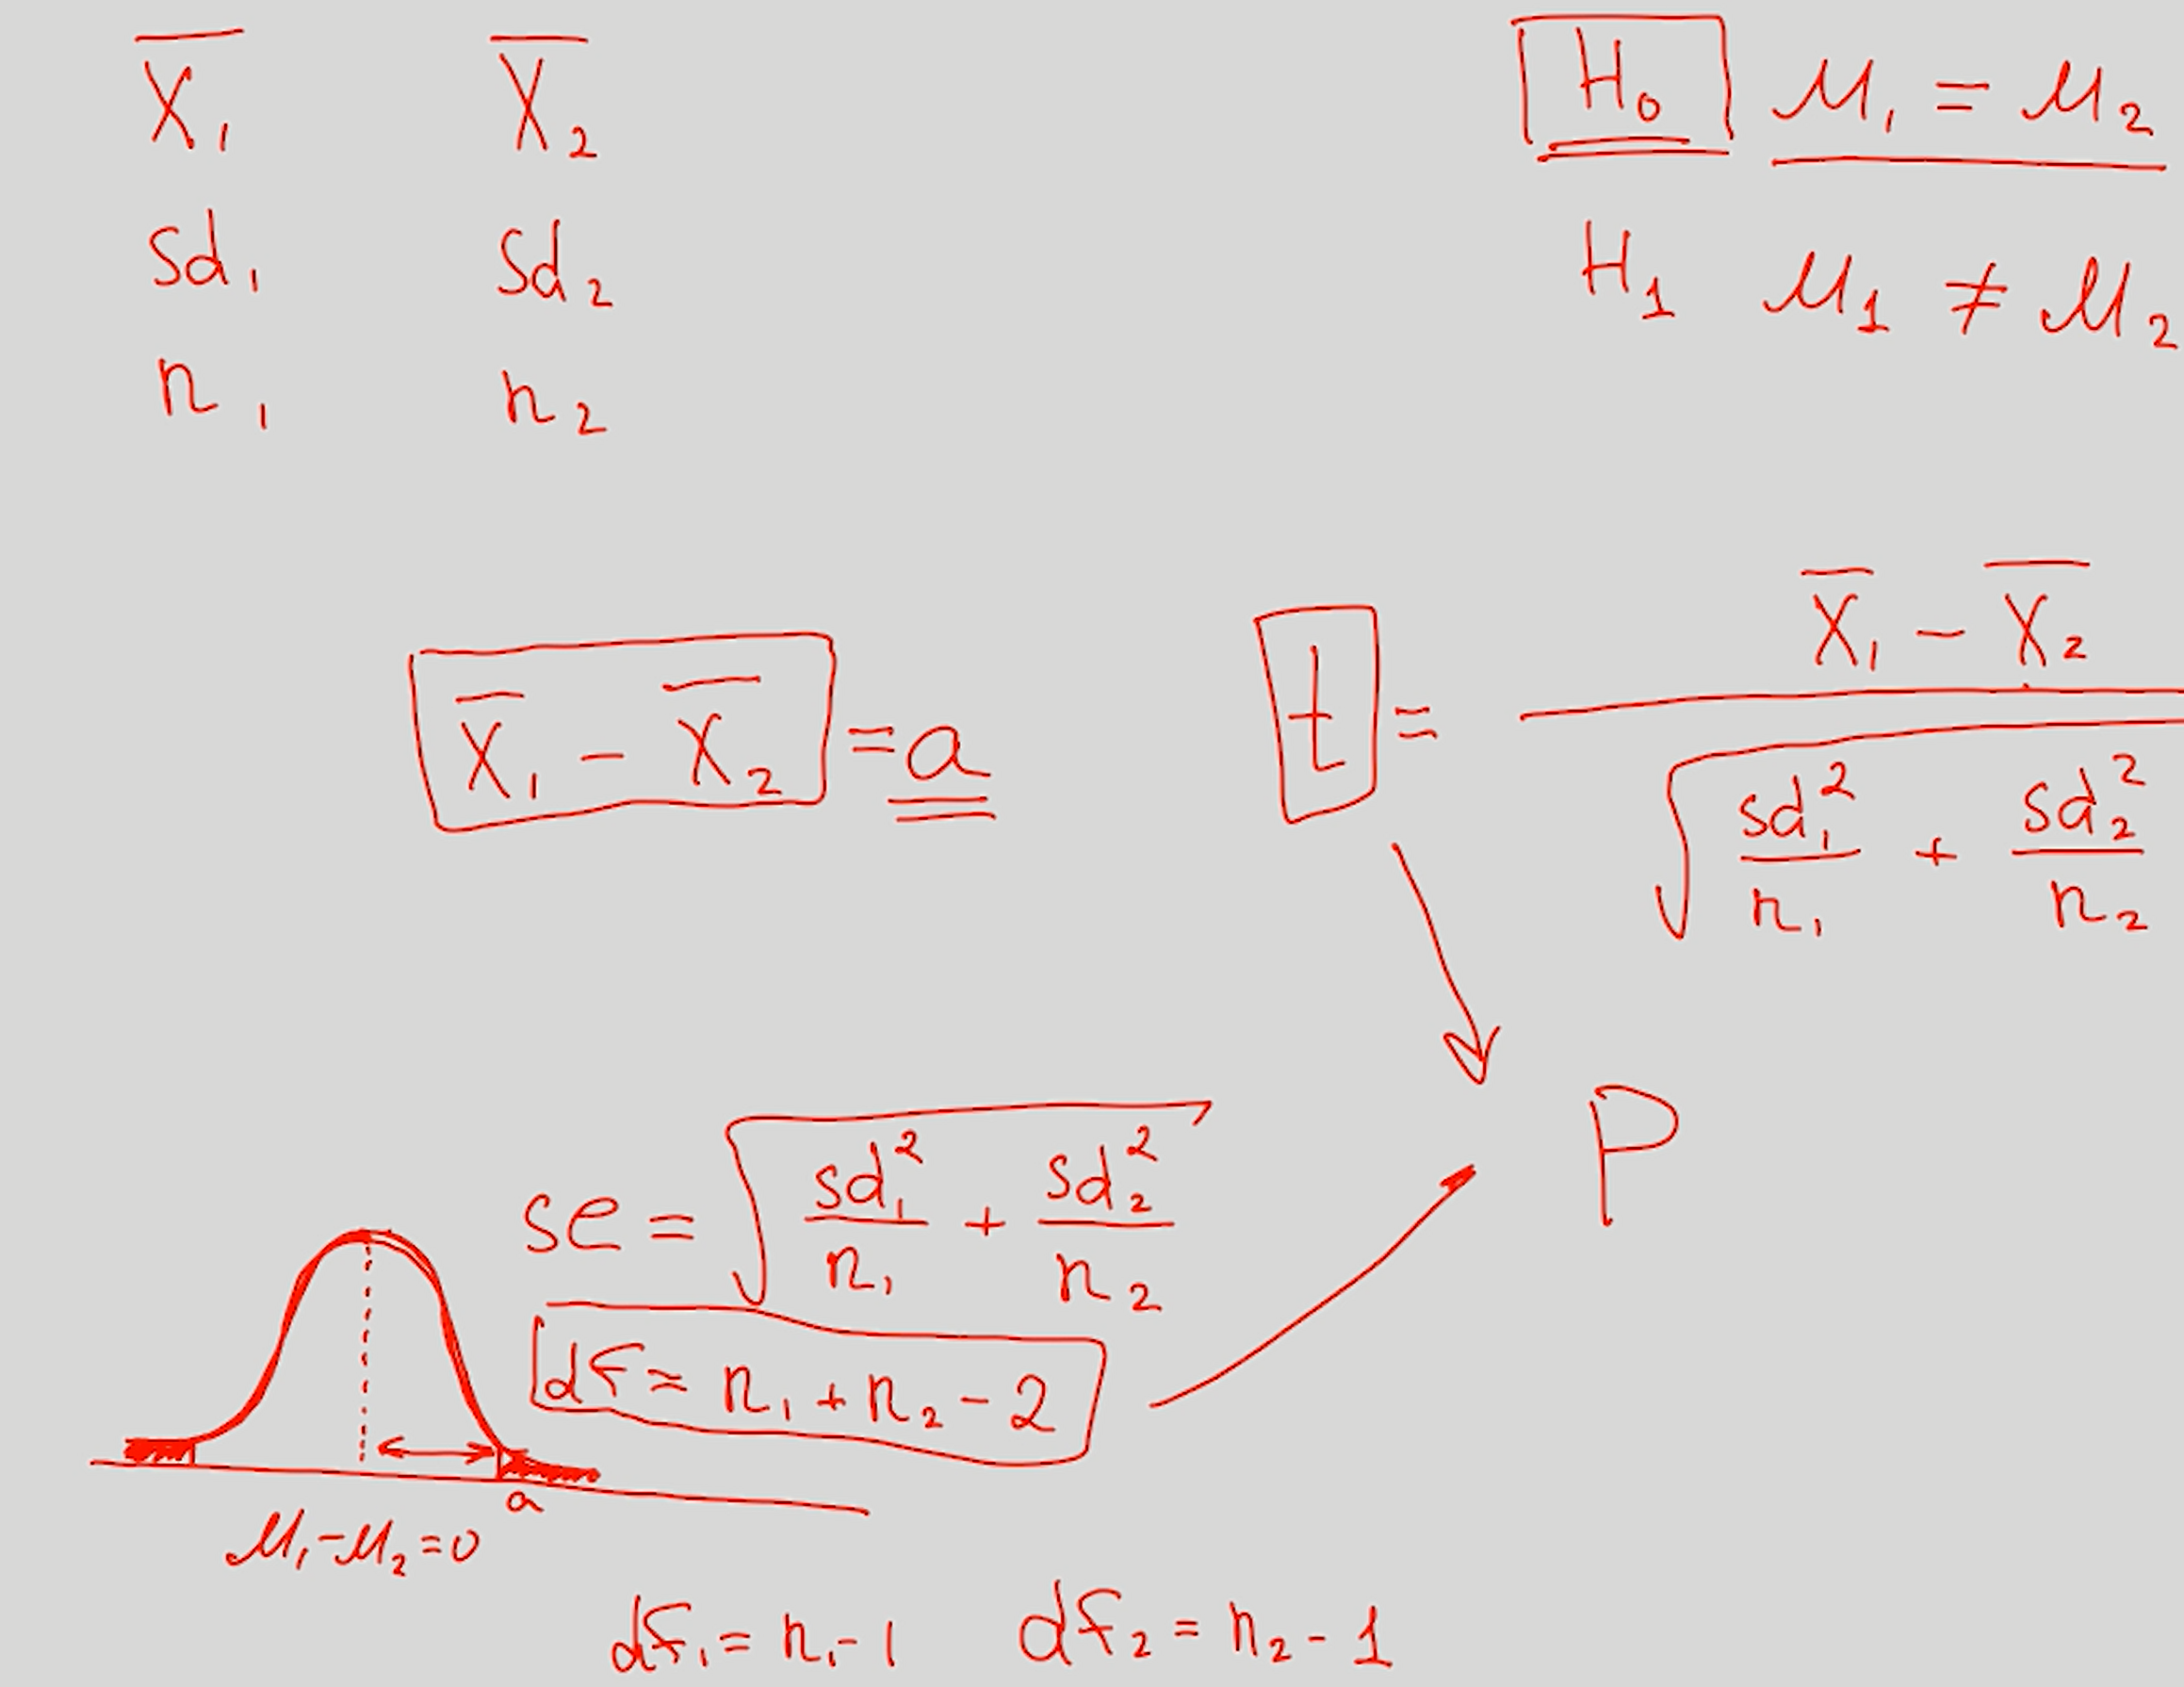 X̄₁ X̄₂ H₀ M₁ = M₂
sd₁ sd₂ H₁ M₁ ≠ M₂
n₁ n₂
X̄₁ − X̄₂ = a
t = (X̄₁ − X̄₂) / √(sd₁²/n₁ + sd₂²/n₂)
P
se = √(sd₁²/n₁ + sd₂²/n₂)
df = n₁ + n₂ − 2
a
M₁ − M₂ = 0
df₁ = n₁ − 1 df₂ = n₂ − 1